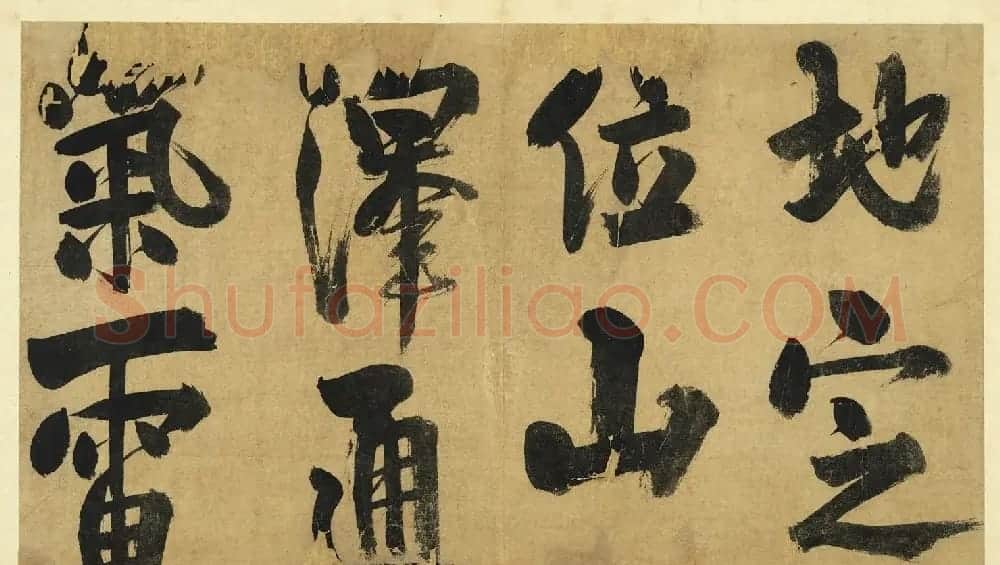 地定
位山
澤通
氣雷
Shufaziliao.COM